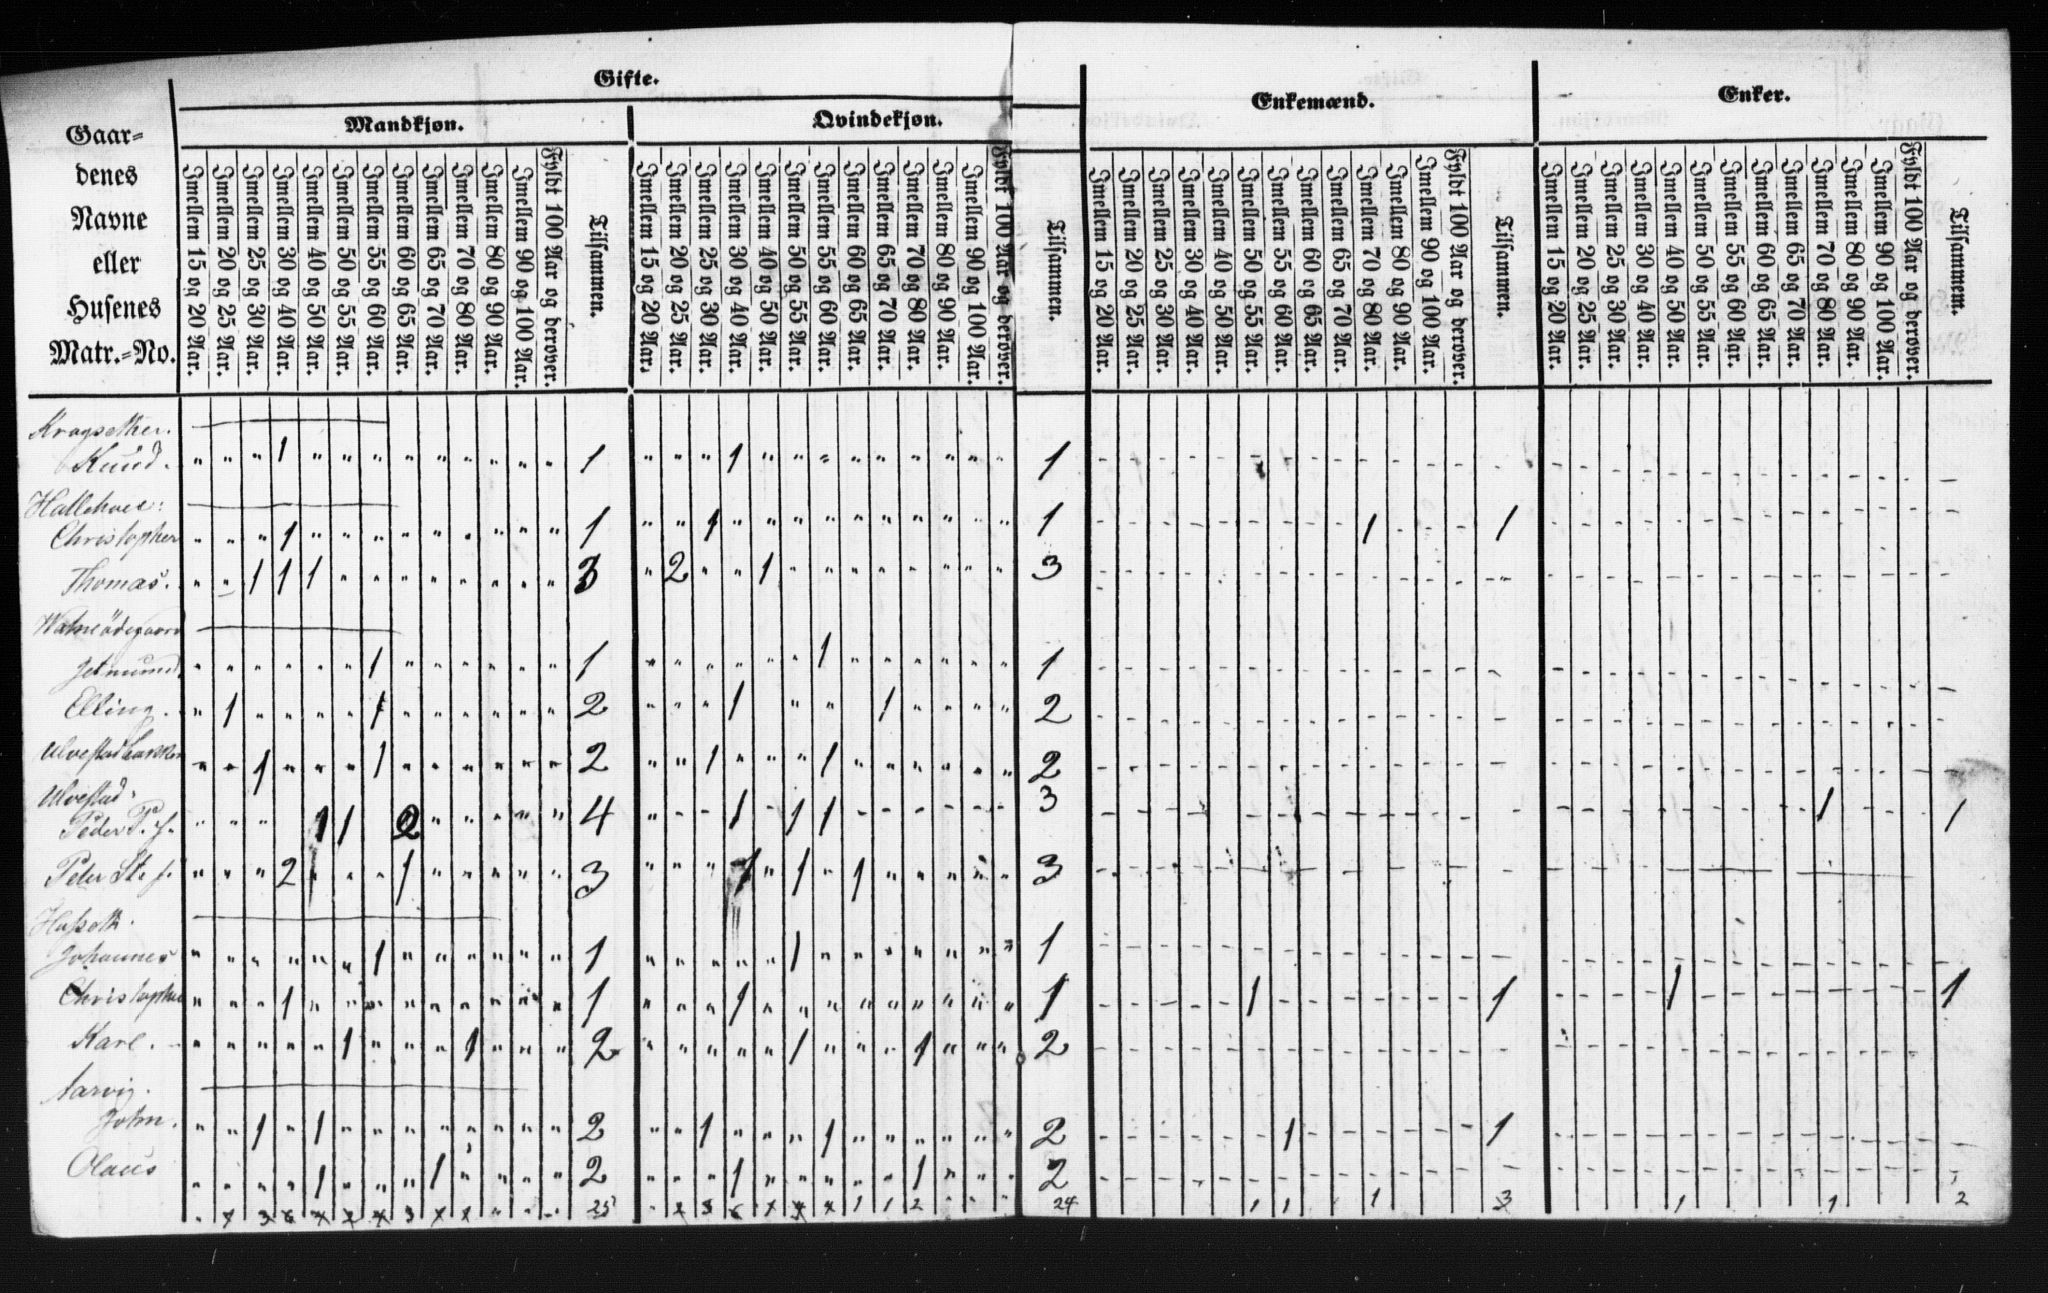 Gifte.
Enkemænd.
Enker.
Mandkjøn.
Qvindekjøn.
Gaar-
denes
Navne
eller
Husenes
Matr.-No.
Imellem 15 og 20 Aar.
Imellem 20 og 25 Aar.
Imellem 25 og 30 Aar.
Imellem 30 og 40 Aar.
Imellem 40 og 50 Aar.
Imellem 50 og 55 Aar.
Imellem 55 og 60 Aar.
Imellem 60 og 65 Aar.
Imellem 65 og 70 Aar.
Imellem 70 og 80 Aar.
Imellem 80 og 90 Aar.
Imellem 90 og 100 Aar.
Fyldt 100 Aar og derover.
Tilsammen.
Imellem 15 og 20 Aar.
Imellem 20 og 25 Aar.
Imellem 25 og 30 Aar.
Imellem 30 og 40 Aar.
Imellem 40 og 50 Aar.
Imellem 50 og 55 Aar.
Imellem 55 og 60 Aar.
Imellem 60 og 65 Aar.
Imellem 65 og 70 Aar.
Imellem 70 og 80 Aar.
Imellem 80 og 90 Aar.
Imellem 90 og 100 Aar.
Fyldt 100 Aar og derover.
Tilsammen.
Imellem 15 og 20 Aar.
Imellem 20 og 25 Aar.
Imellem 25 og 30 Aar.
Imellem 30 og 40 Aar.
Imellem 40 og 50 Aar.
Imellem 50 og 55 Aar.
Imellem 55 og 60 Aar.
Imellem 60 og 65 Aar.
Imellem 65 og 70 Aar.
Imellem 70 og 80 Aar.
Imellem 80 og 90 Aar.
Imellem 90 og 100 Aar.
Fyldt 100 Aar og derover.
Tilsammen.
Imellem 15 og 20 Aar.
Imellem 20 og 25 Aar.
Imellem 25 og 30 Aar.
Imellem 30 og 40 Aar.
Imellem 40 og 50 Aar.
Imellem 50 og 55 Aar.
Imellem 55 og 60 Aar.
Imellem 60 og 65 Aar.
Imellem 65 og 70 Aar.
Imellem 70 og 80 Aar.
Imellem 80 og 90 Aar.
Imellem 90 og 100 Aar.
Fyldt 100 Aar og derover.
Tilsammen.
Kragsether.
Knud. 1 1 1 1
Christopher 1 1 1 1 1 1
Thomas. 1 1 1 3 2 1 3
Jetmund. 1 1 1 1
Elling. 1 1 2 1 1 2
1 1 2 1 1 2
Ulvestad.
Peder P. s. 1 1 2 4 1 1 1 3 1 1
Peter St. s. 2 1 3 1 1 1 3
Johannes 1 1 1 1
Christopher 1 1 1 1 1 1 1 1
Karl. 1 1 2 1 1 2
Aarvig.
John. 1 1 2 1 1 2 1 1
Olaus 1 1 2 1 1 2
25 24 1 1 1 3 1 1 2